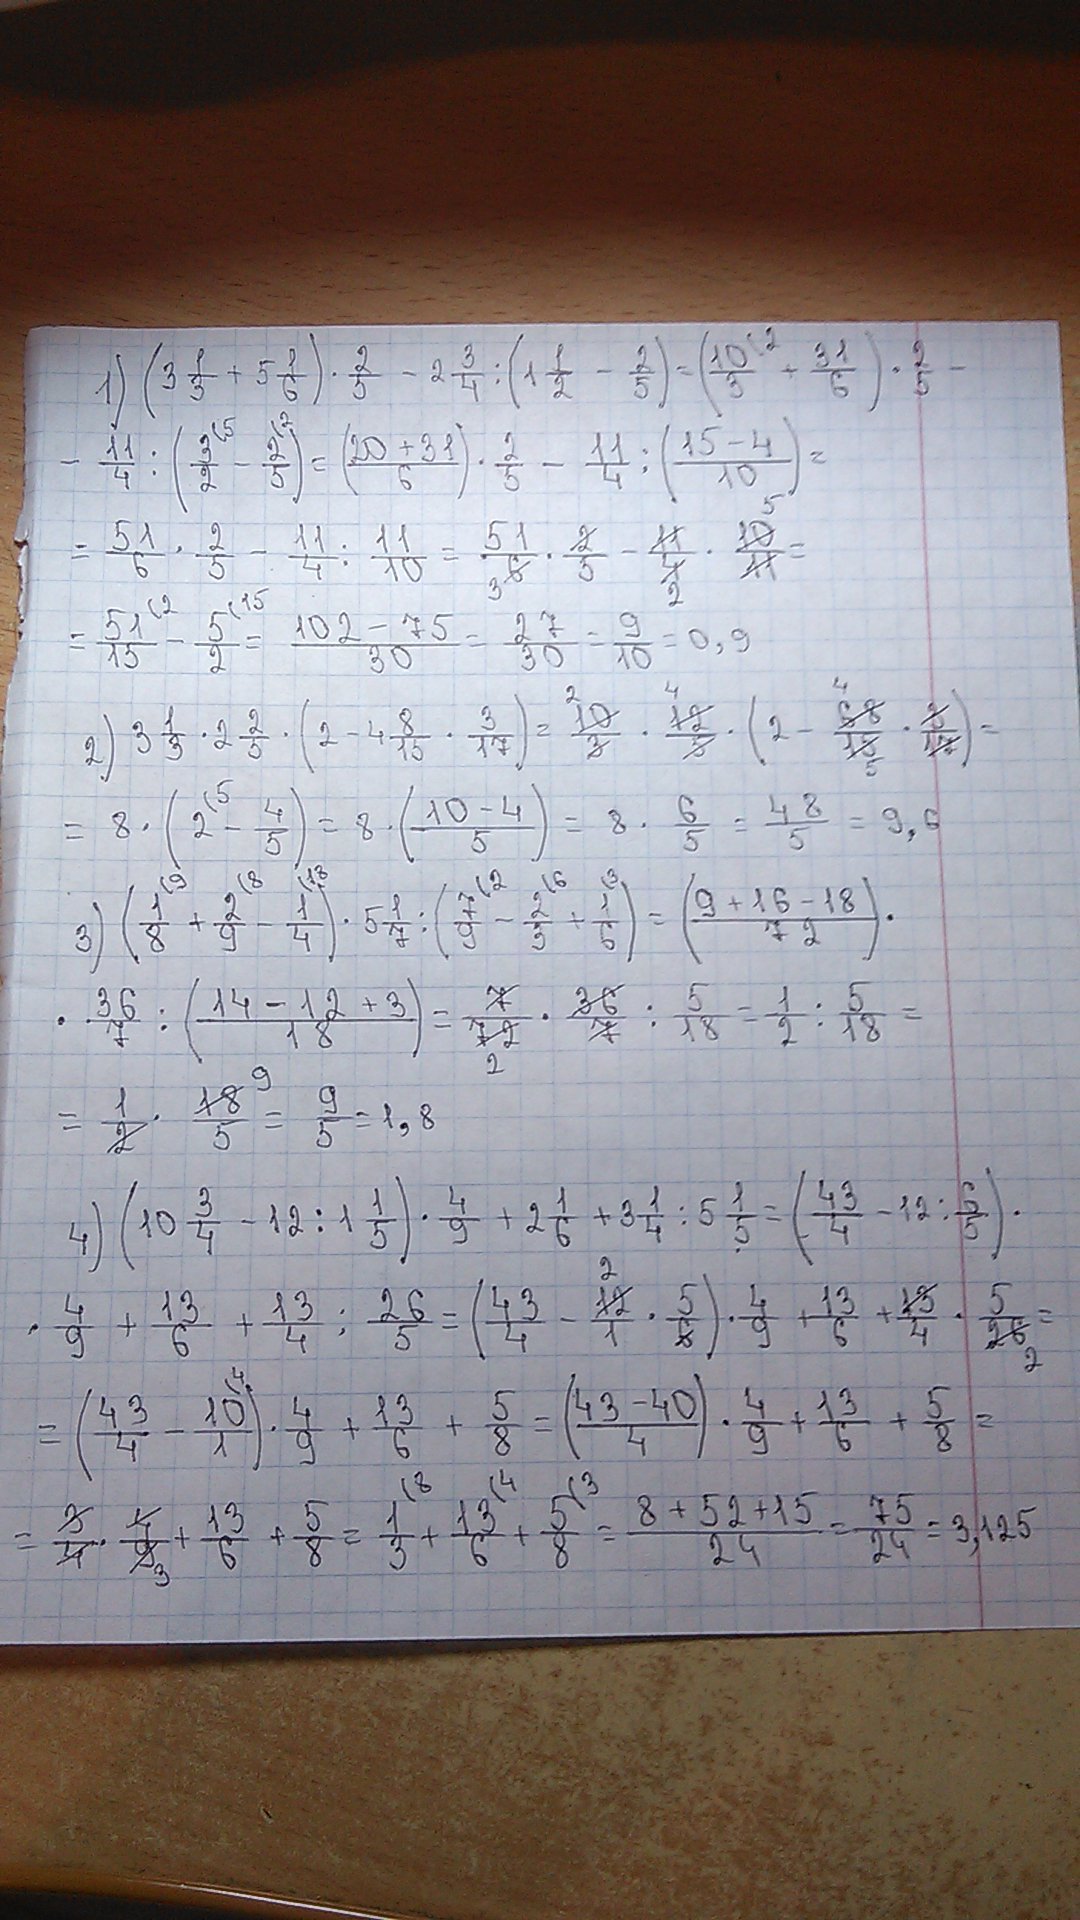 1) (3 1/3 + 5 1/6) · 2/5 - 2 3/4 : (1 1/2 - 2/5) = (10/3 (2 + 31/6) · 2/5 -
- 11/4 : (3/2 (5 - 2/5 (2) = (20+31/6) · 2/5 - 11/4 : (15-4/10) =
= 51/6 · 2/5 - 11/4 : 11/10 = 51/6 3 · 2/5 - 11/4 2 · 10/11 5 =
= 51/15 (2 - 5/2 (15 = 102-75/30 = 27/30 = 9/10 = 0,9
2) 3 1/3 · 2 2/5 · (2 - 4 8/15 · 3/17) = 10/3 2 · 12/5 4 · (2 - 68/15 4 5 · 3/17) =
= 8 · (2 (5 - 4/5) = 8 · (10-4/5) = 8 · 6/5 = 48/5 = 9,6
3) (1/8 (9 + 2/9 (8 - 1/4 (18) · 5 1/7 : (7/9 (2 - 2/3 (6 + 1/6 (3) = (9+16-18/72) ·
· 36/7 : (14-12+3/18) = 7/72 2 · 36/7 : 5/18 = 1/2 : 5/18 =
= 1/2 · 18/5 9 = 9/5 = 1,8
4) (10 3/4 - 12 : 1 1/5) · 4/9 + 2 1/6 + 3 1/4 : 5 1/5 = (43/4 - 12 : 6/5) ·
· 4/9 + 13/6 + 13/4 : 26/5 = (43/4 - 12/1 2 · 5/6) · 4/9 + 13/6 + 13/4 · 5/26 2 =
= (43/4 - 10/1 (4) · 4/9 + 13/6 + 5/8 = (43-40/4) · 4/9 + 13/6 + 5/8 =
= 3/4 · 4/9 3 + 13/6 + 5/8 = 1/3 (8 + 13/6 (4 + 5/8 (3 = 8+52+15/24 = 75/24 = 3,125